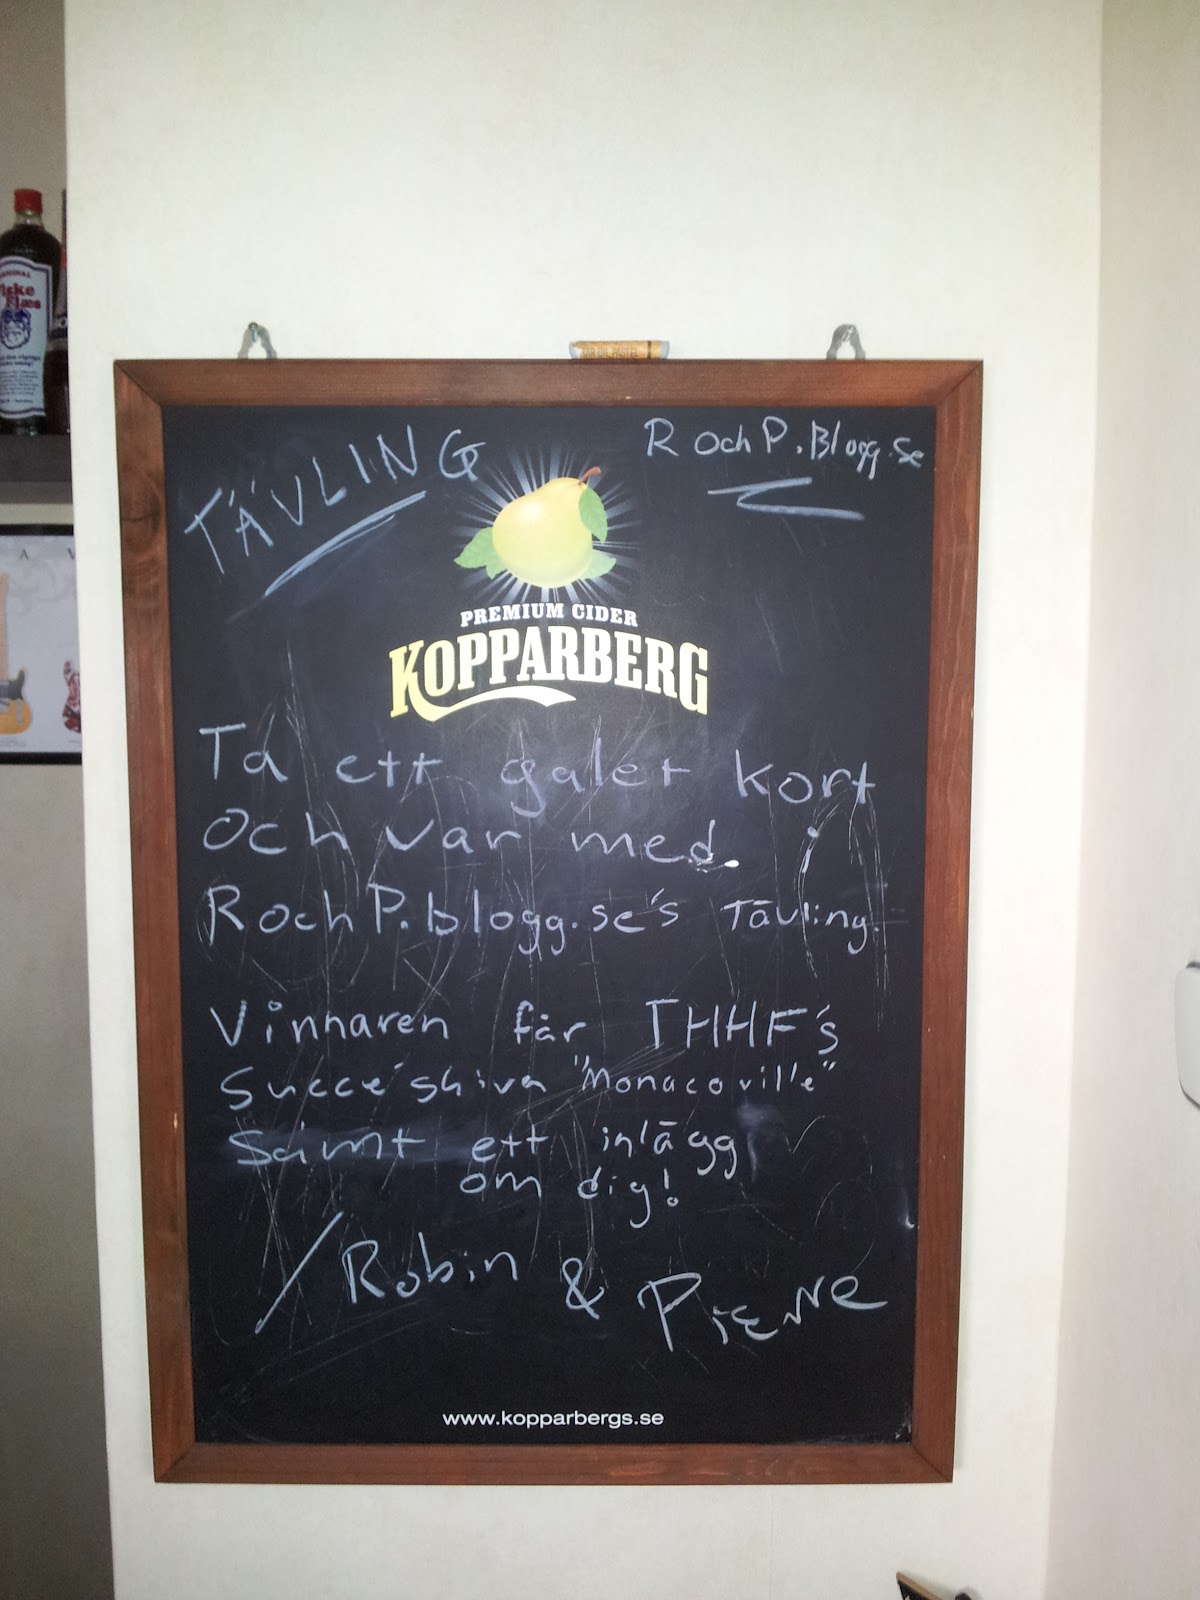 TÄVLING
R och P.Blogg.se
PREMIUM CIDER
KOPPARBERG
Ta ett galet kort
och var med i
R och P.blogg.se's Tävling.
Vinnaren får THHF's
Succe'skiva "Monacoville"
Samt ett inlägg
om dig!
/Robin & Pierre
www.kopparbergs.se
OIL PASTEL
Fiske